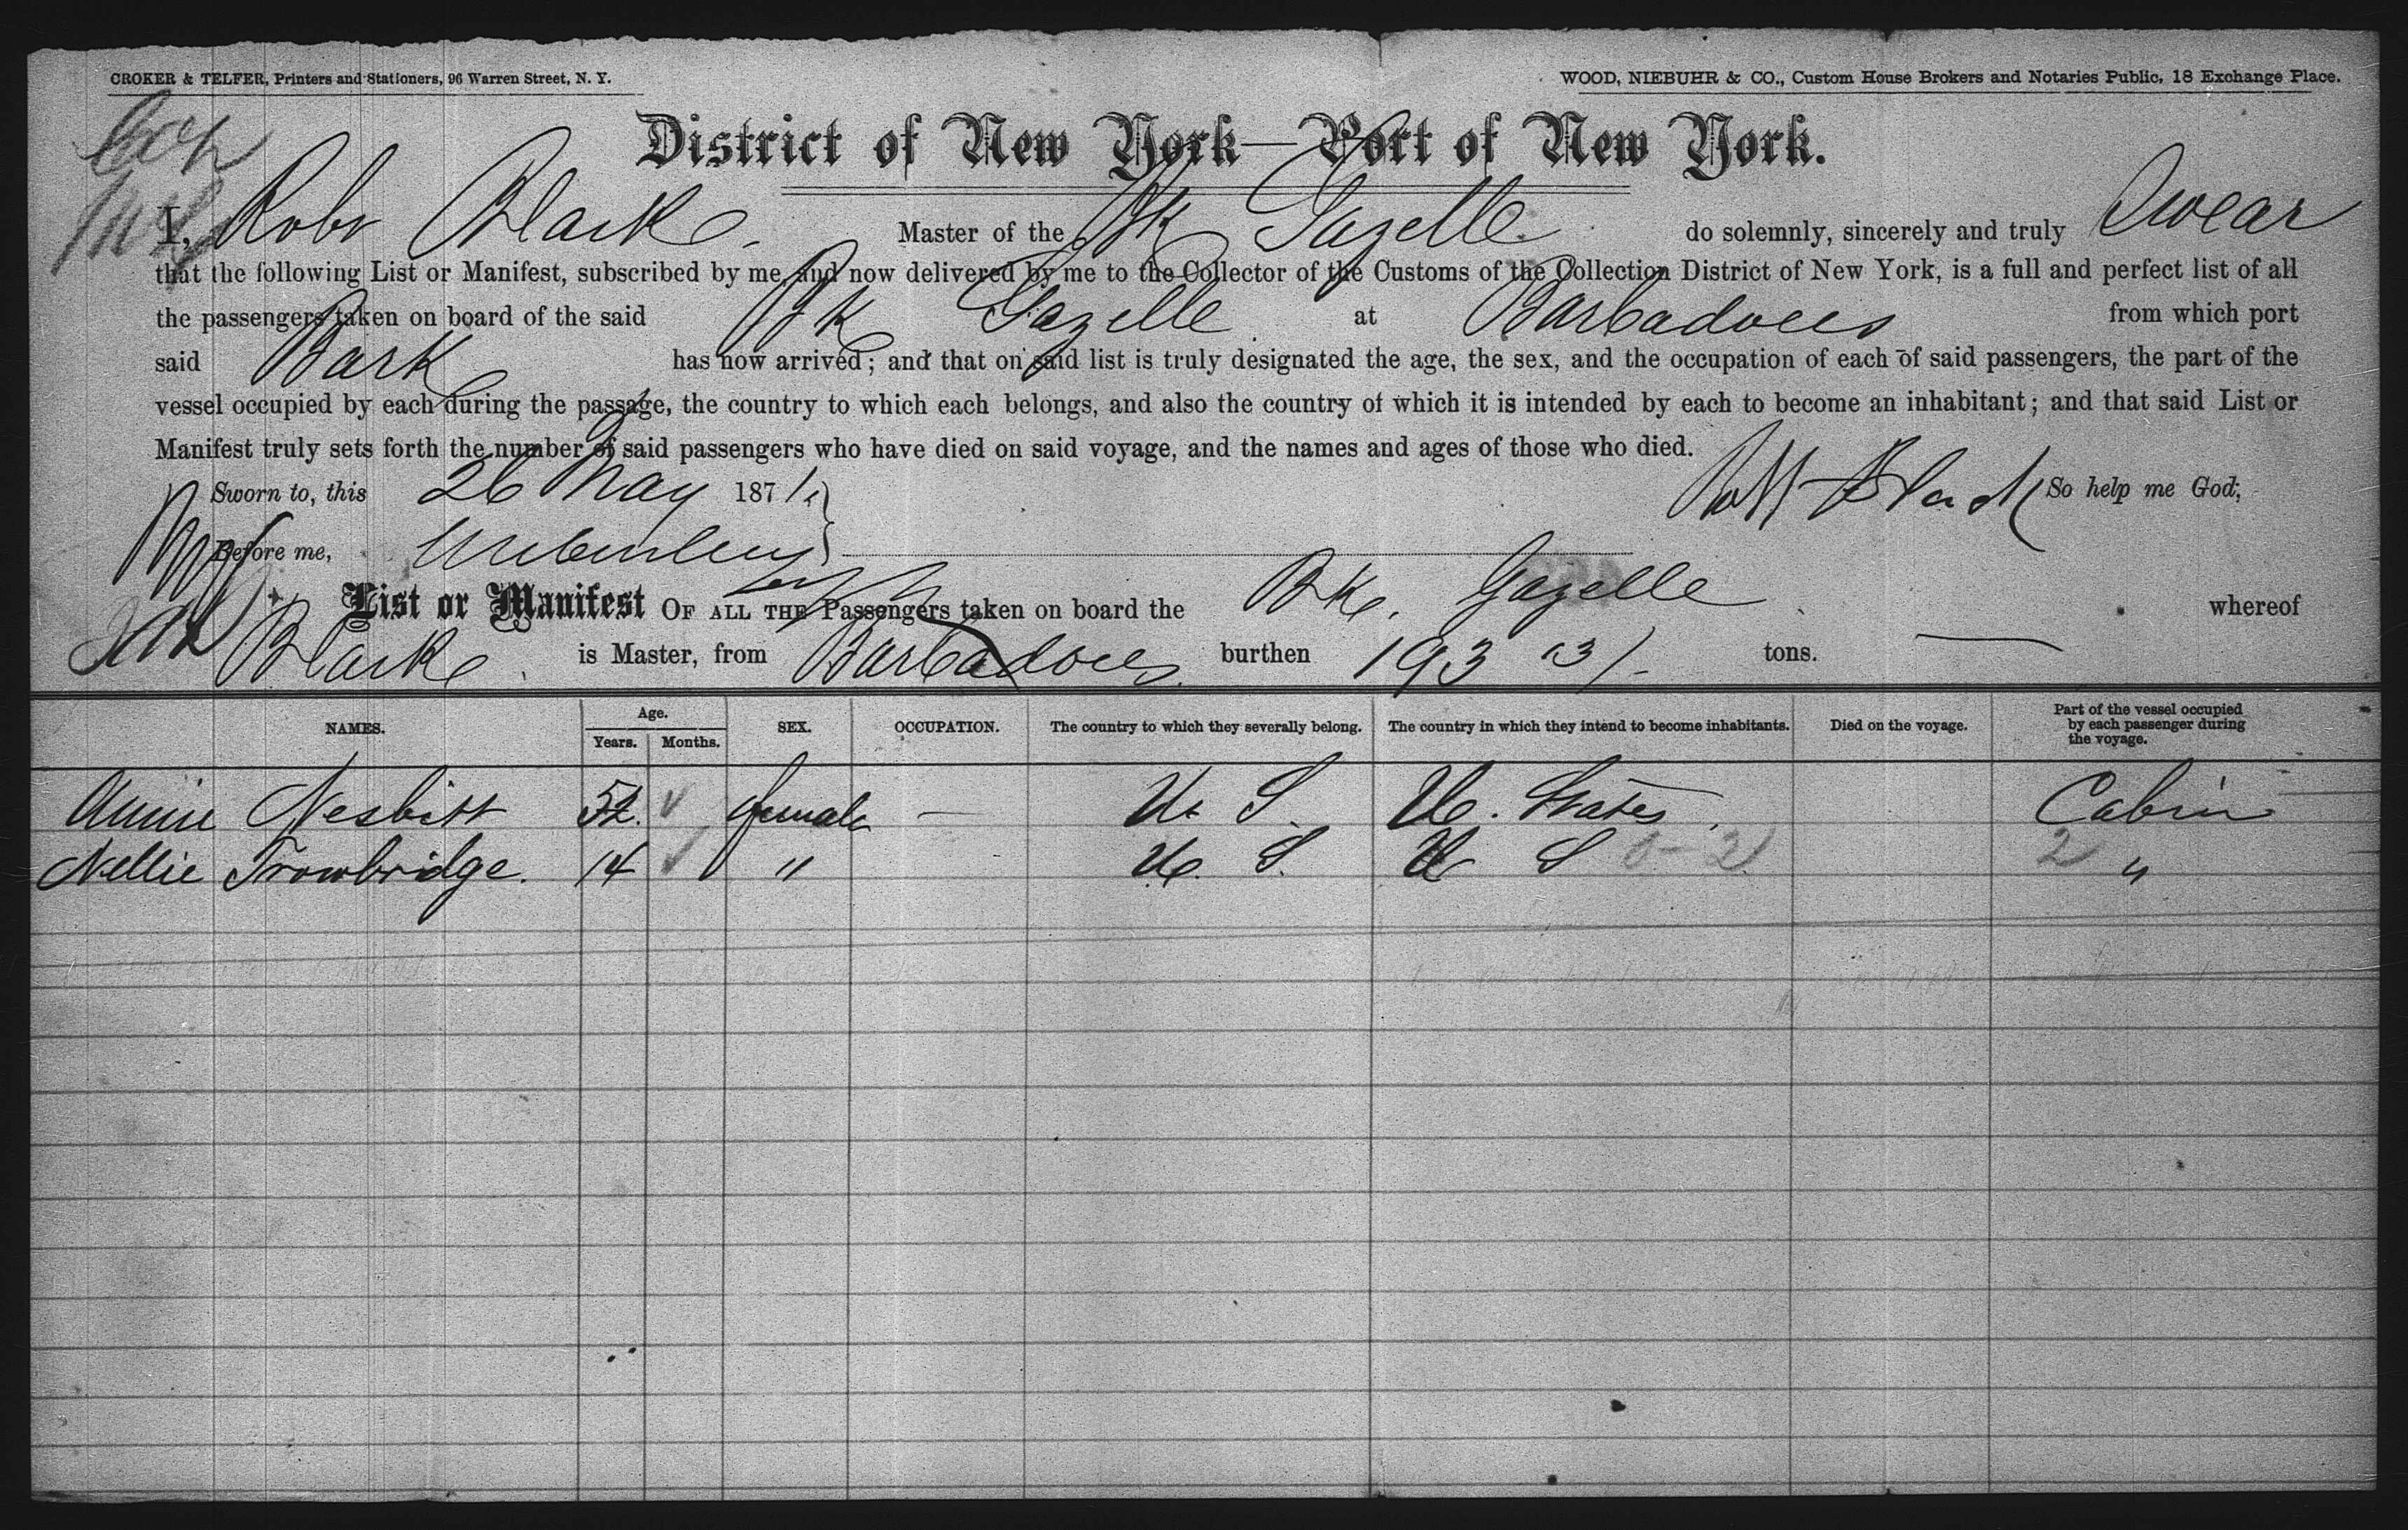 CROKER & TELFER, Printers and Stationers, 96 Warren Street, N. Y. WOOD, NIEBUHR & CO., Custom House Brokers and Notaries Public, 18 Exchange Place.
District of New York—Port of New York.
I, Robt Black Master of the Bk Gazelle do solemnly, sincerely and truly Swear
that the following List or Manifest, subscribed by me, and now delivered by me to the Collector of the Customs of the Collection District of New York, is a full and perfect list of all
the passengers taken on board of the said Bk Gazelle at Barbadoes from which port
said Bark has now arrived; and that on said list is truly designated the age, the sex, and the occupation of each of said passengers, the part of the
vessel occupied by each during the passage, the country to which each belongs, and also the country of which it is intended by each to become an inhabitant; and that said List or
Manifest truly sets forth the number of said passengers who have died on said voyage, and the names and ages of those who died.
Sworn to, this 26 May 1871. Robt Black So help me God;
Before me,
List or Manifest OF ALL THE Passengers taken on board the Bk. Gazelle whereof
Black is Master, from Barbadoes burthen 193 tons.
NAMES. Age. Years. Months. SEX. OCCUPATION. The country to which they severally belong. The country in which they intend to become inhabitants. Died on the voyage. Part of the vessel occupied by each passenger during the voyage.
Annie Nesbitt 52. female — U. S. U. States. Cabin
Nellie Trowbridge. 14 " U. S. U S 0-2 2 "